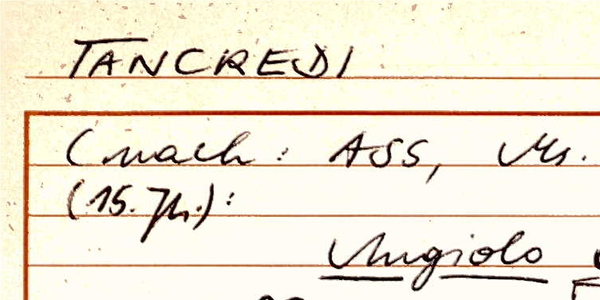 TANCREDI
(nach: ASS, Ms.
(15. Jh.):
Angiolo